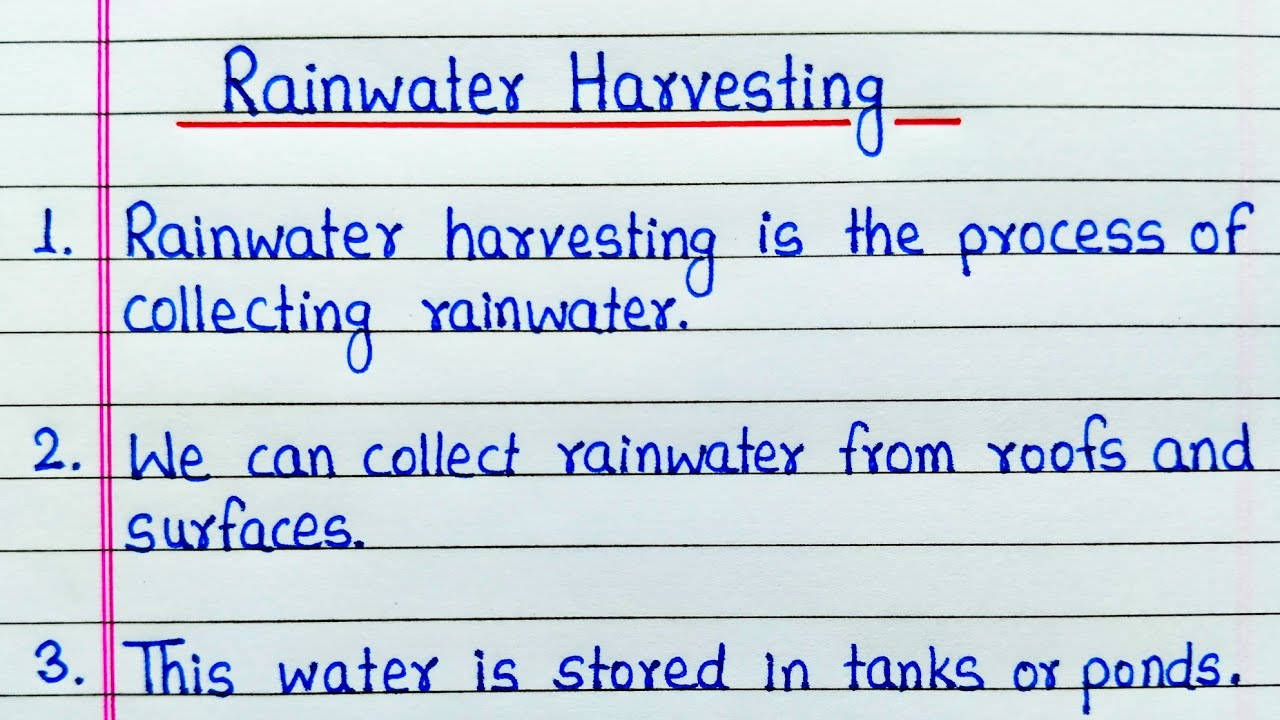 Rainwater Harvesting
1. Rainwater harvesting is the process of
collecting rainwater.
2. We can collect rainwater from roofs and
surfaces.
3. This water is stored in tanks or ponds.